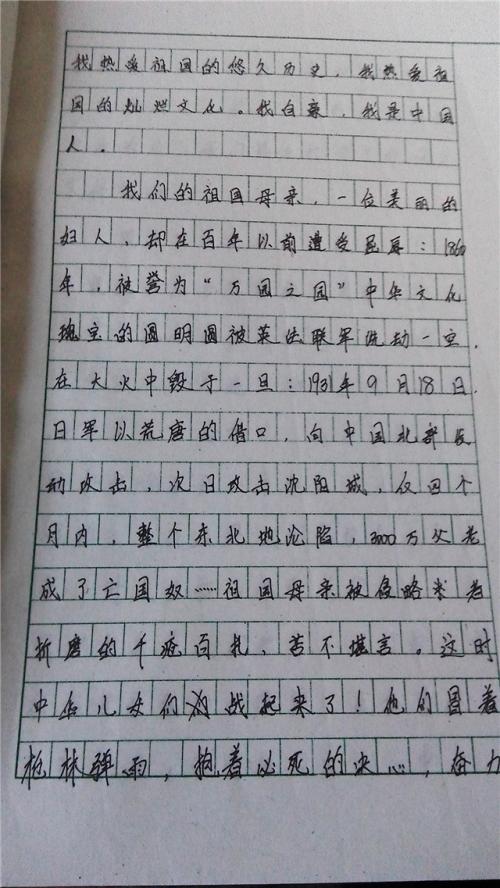 我热爱祖国的悠久历史，我热爱祖
国的灿烂文化。我自豪，我是中国
人。
我们的祖国母亲，一位美丽的
妇人，却在百年以前遭受屈辱：1860
年，被誉为“万园之园”中华文化
瑰宝的圆明圆被英法联军洗劫一空，
在大火中毁于一旦；1931年9月18日，
日军以荒唐的借口，向中国北部发
动攻击，次日攻击沈阳城，仅四个
月内，整个东北地沦陷，3000万父老
成了亡国奴……祖国母亲被侵略者
折磨的千疮百孔、苦不堪言。这时
中华儿女们战起来了！他们冒着
枪林弹雨，抱着必死的决心，奋力